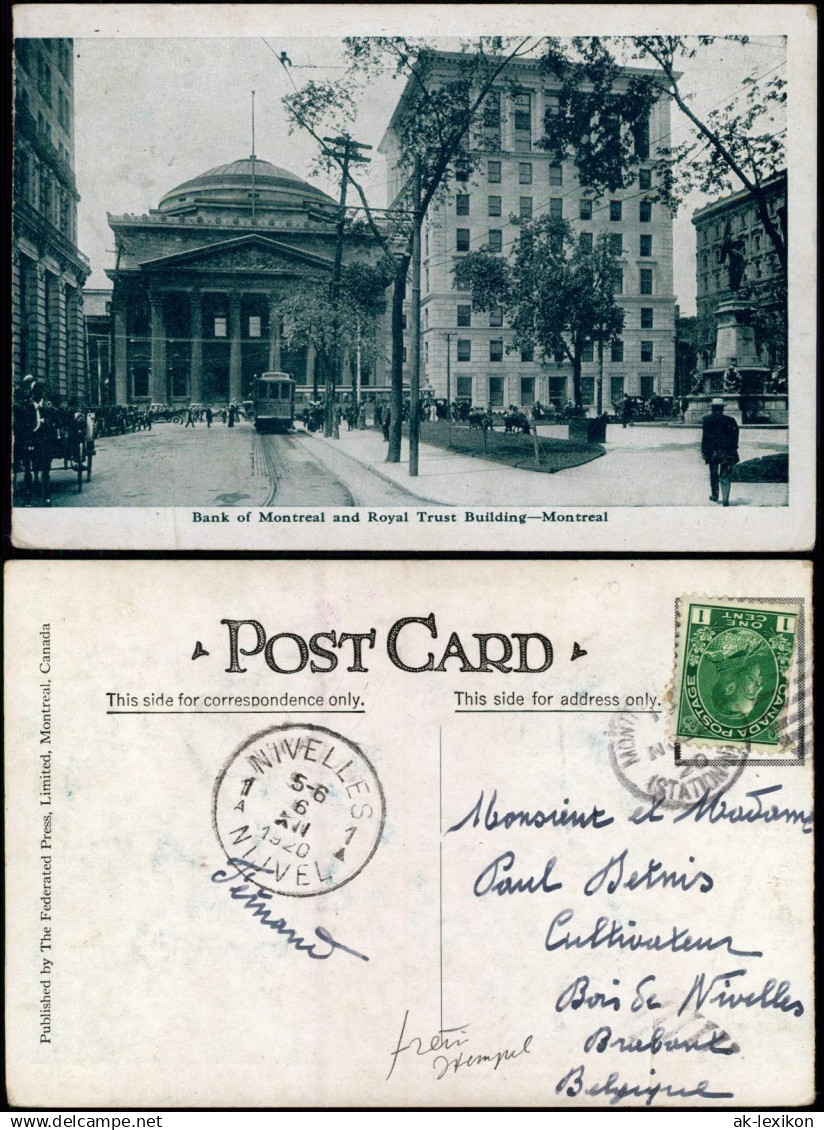 Bank of Montreal and Royal Trust Building—Montreal
POST CARD
This side for correspondence only.
This side for address only.
Published by The Federated Press, Limited, Montreal, Canada
1 ONE CENT 1
CANADA POSTAGE
NIVELLES
1 A
5-6
6
XII
1920
1
NIJVEL
20
(STATION
Fernand
Monsieur et Madame
Paul Bernis
Cultivateur
Bois de Nivelles
Brabant
Belgique
Stempel
ak-lexikon